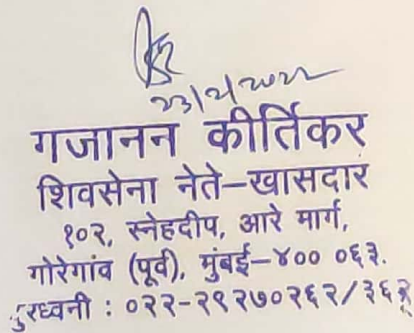 23/2/2022
गजानन कीर्तिकर
शिवसेना नेते-खासदार
१०२, स्नेहदीप, आरे मार्ग,
गोरेगांव (पूर्व), मुंबई-४०० ०६३.
दुरध्वनी : ०२२-२९२७०२६२/३६२